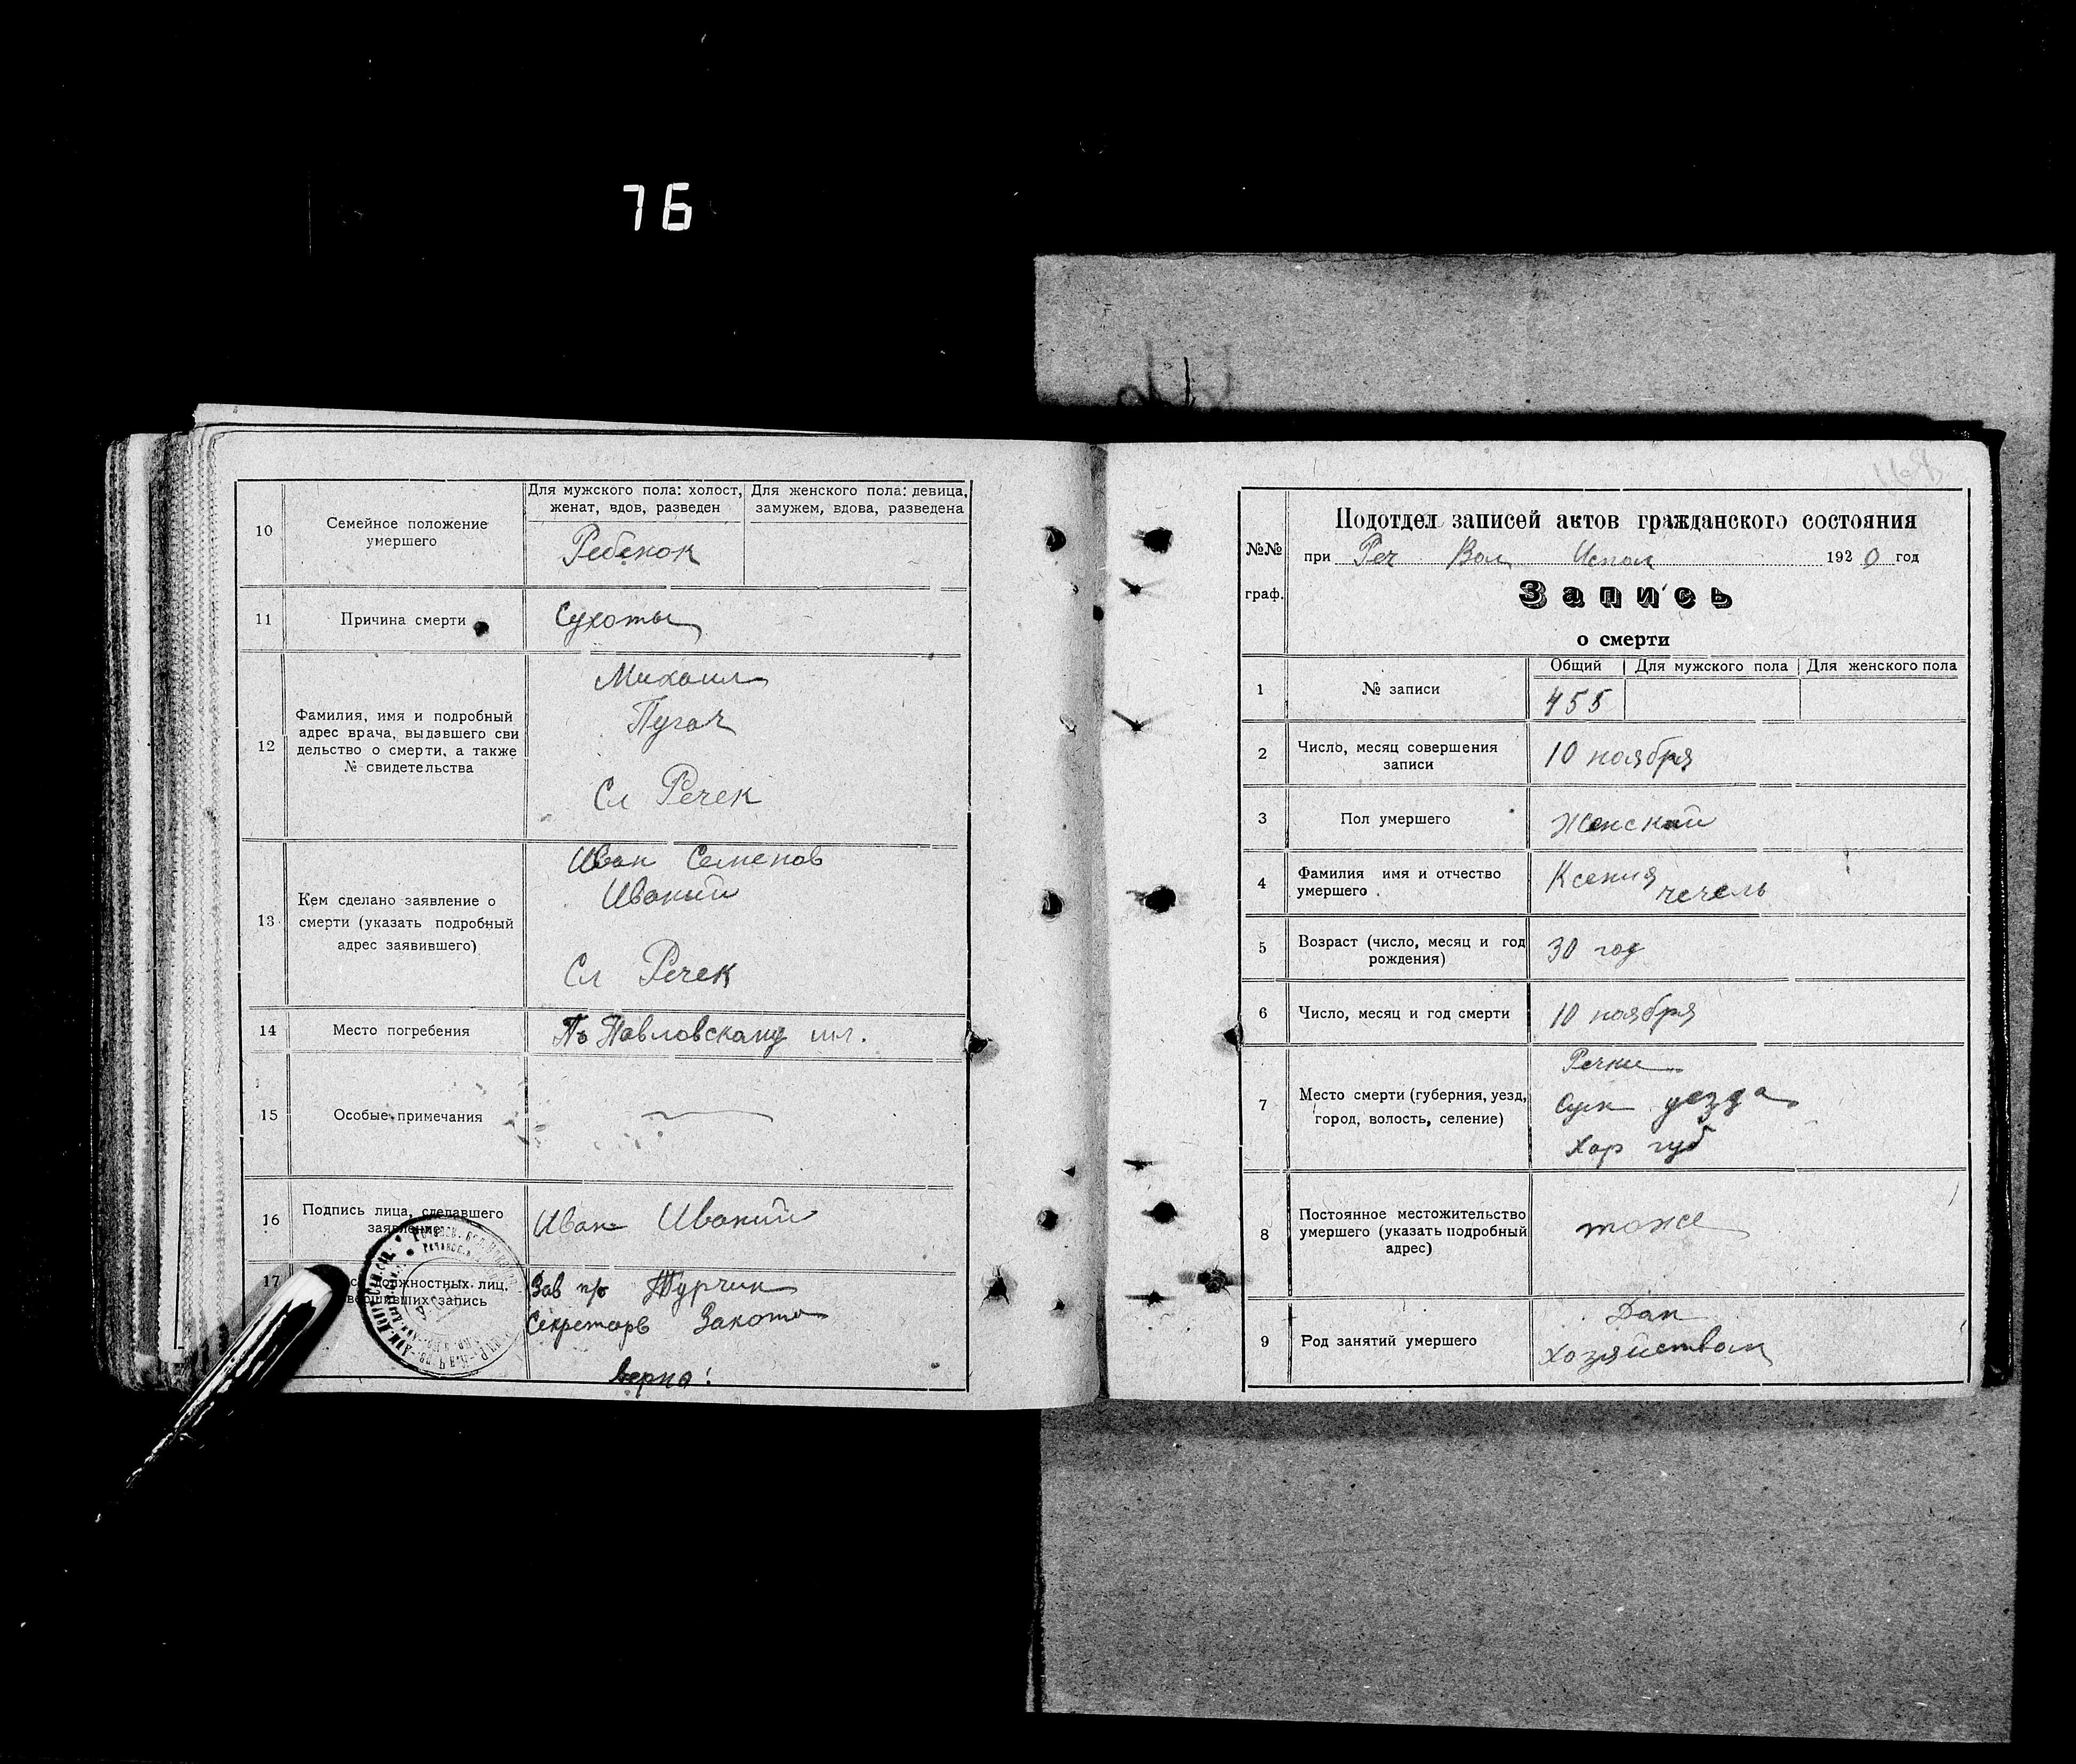 76
10
Семейное положение
умершего
Для мужского пола: холост,
женат, вдов, разведен
Для женского пола: девица,
замужем, вдова, разведена
Ребенок
11
Причина смерти
Сухоты
12
Фамилия, имя и подробный
адрес врача, выдавшего сви
дельство о смерти, а также
№ свидетельства
Михаил
Пугач
Сл Речек
13
Кем сделано заявление о
смерти (указать подробный
адрес заявившего)
Иван Семенов
Иваний
Сл Речек
14
Место погребения
По Павловскому
15
Особые примечания
16
Подпись лица, сделавшего
заявление
Иван Иваний
17
должностных лиц,
вершивших запись
Зав п/о Турчин
Секретарь Закота
верно:
168
№№
граф.
Подотдел записей актов гражданского состояния
при Реч Вол Испол 1920 год
Запись
о смерти
1
№ записи
Общий
Для мужского пола
Для женского пола
455
2
Число, месяц совершения
записи
10 ноября
3
Пол умершего
Женский
4
Фамилия имя и отчество
умершего
Ксения
Чечель
5
Возраст (число, месяц и год
рождения)
30 год
6
Число, месяц и год смерти
10 ноября
7
Место смерти (губерния, уезд,
город, волость, селение)
Речки
Сум уезда
Хар губ
8
Постоянное местожительство
умершего (указать подробный
адрес)
тоже
9
Род занятий умершего
Дом
Хозяйством